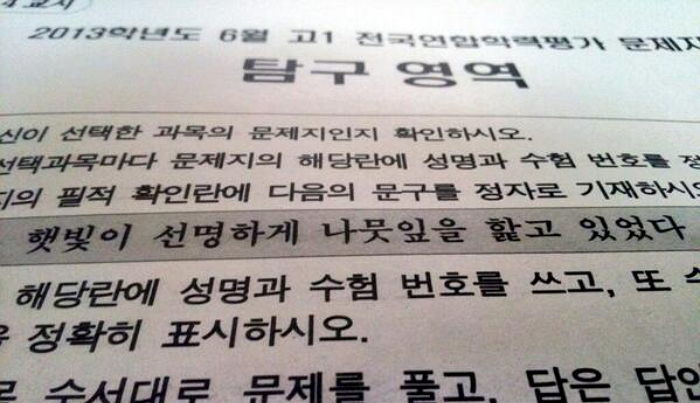 4 교시
2013학년도 6월 고1 전국연합학력평가 문제지
탐구 영역
신이 선택한 과목의 문제지인지 확인하시오.
선택과목마다 문제지의 해당란에 성명과 수험 번호를 정
지의 필적 확인란에 다음의 문구를 정자로 기재하시
햇빛이 선명하게 나뭇잎을 핥고 있었다
해당란에 성명과 수험 번호를 쓰고, 또 수
을 정확히 표시하시오.
로 순서대로 문제를 풀고, 답은 답안